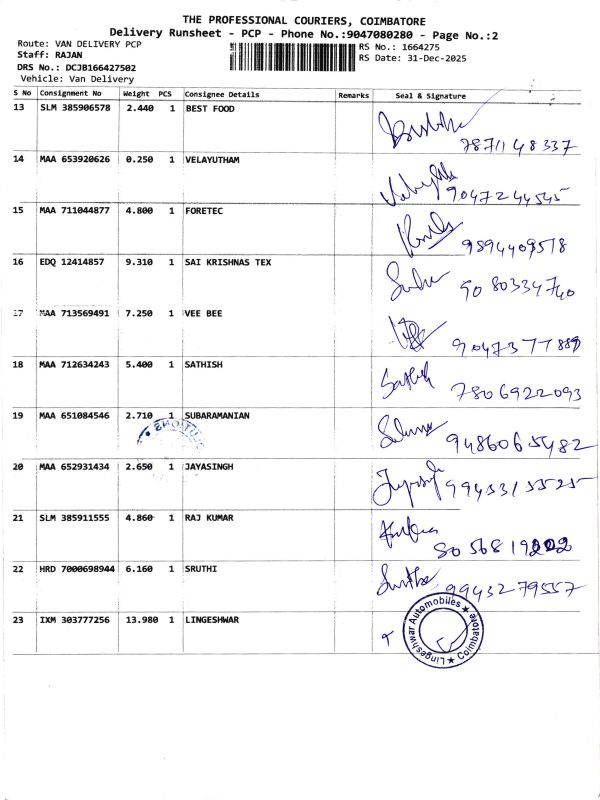 THE PROFESSIONAL COURIERS, COIMBATORE
Delivery Runsheet - PCP - Phone No.:9047080280 - Page No.:2
Route: VAN DELIVERY PCP
Staff: RAJAN
DRS No.: DCJB166427502
Vehicle: Van Delivery
RS No.: 1664275
RS Date: 31-Dec-2025
S No Consignment No Weight PCS Consignee Details Remarks Seal & Signature
13 SLM 385906578 2.440 1 BEST FOOD
7871148337
14 MAA 653920626 0.250 1 VELAYUTHAM
9047244545
15 MAA 711044877 4.800 1 FORETEC
9894409518
16 EDQ 12414857 9.310 1 SAI KRISHNAS TEX
9080334740
17 MAA 713569491 7.250 1 VEE BEE
9047377889
18 MAA 712634243 5.400 1 SATHISH
Sathish 7806922093
19 MAA 651084546 2.710 1 SUBARAMANIAN
9486065482
20 MAA 652931434 2.650 1 JAYASINGH
9943315525
21 SLM 385911555 4.860 1 RAJ KUMAR
22 HRD 7000698944 6.160 1 SRUTHI
9943279557
23 IXM 303777256 13.980 1 LINGESHWAR
Lingeshwar Automobiles ★ Coimbatore ★